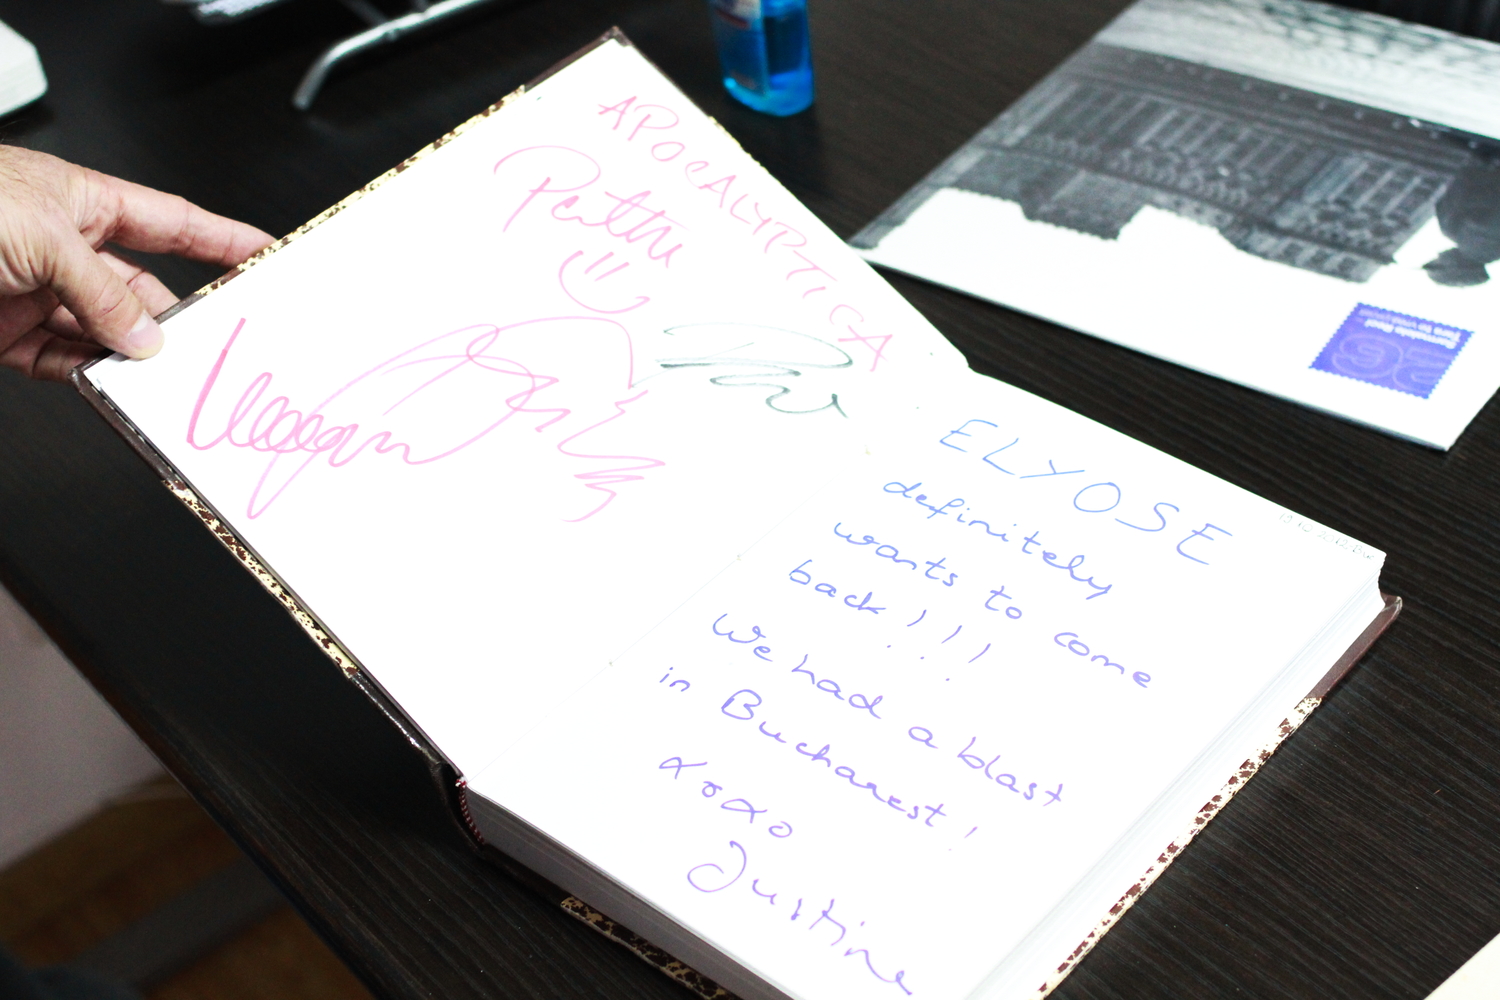 APOCALYPTICA
Perttu
ELYOSE
definitely
wants to come
back!!!
We had a blast
in Bucharest!
xoxo
Justine